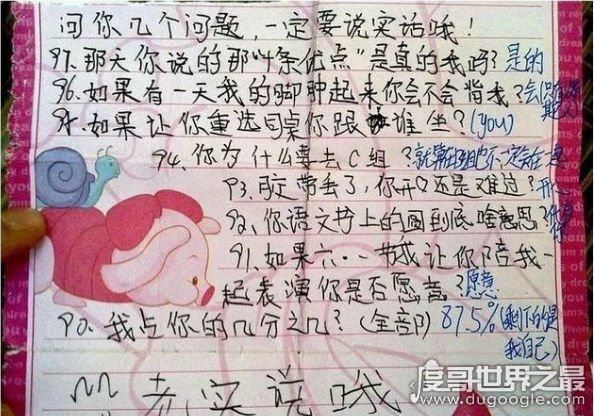 问你几个问题，一定要说实话哦！
97.那天你说的那"十条优点"是真的我吗？是的
96.如果有一天我的脚印起来你会不会背我？会
95.如果让你重选同桌你跟谁坐？(you)
94.你为什么要去C组？就算在B组也不一定在
93.胶带丢了，你开心还是难过？开心
92.你语文书上的圆到底啥意思？
91.如果六·一节我让你陪我一
起表演你是否愿意？愿意
90.我占你的几分之几？(全部) 87.5%(剩下的是
我自己)
老实说哦
度哥世界之最
www.dugoogle.com